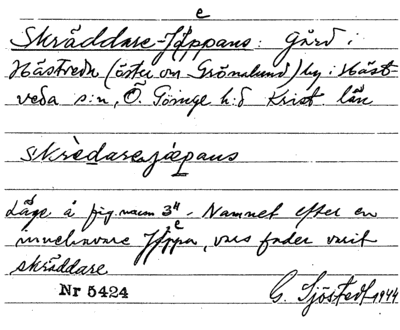 e
Skräddare-Jäppans: Gård i
Hästveda (öster om Grönalund) by i Häst-
veda s:n, Ö. Göinge h:d Krist. län
skrèdarejæpans
Läge å fig. namn 3⁴. Namnet efter en
innehavare Jeppa, vars fader varit
skräddare
Nr 5424
G. Sjöstedt 1944